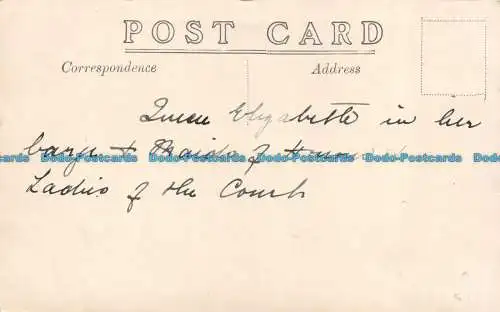 POST CARD
Correspondence
Address
Queen Elizabeth in her
barge & Maids of Honour
Ladies of the Court
Dodo-Postcards Dodo-Postcards Dodo-Postcards Dodo-Postcards Dodo-Postcards